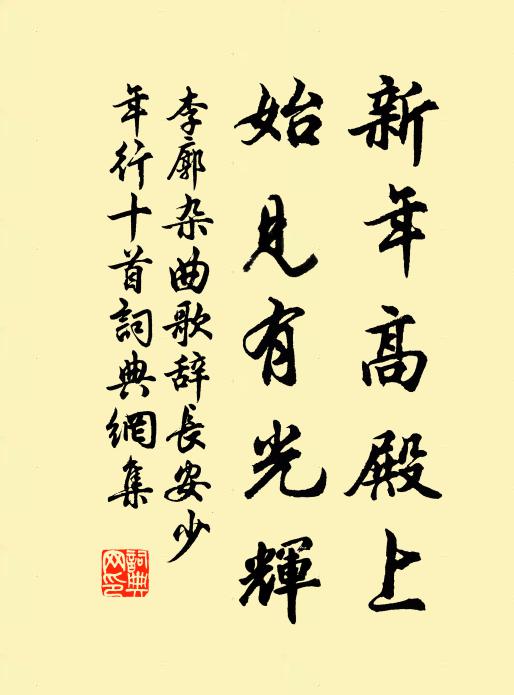 新年高殿上
始見有光輝
李廓杂曲歌辞長安少
年行十首詞典網集
詞典
网印